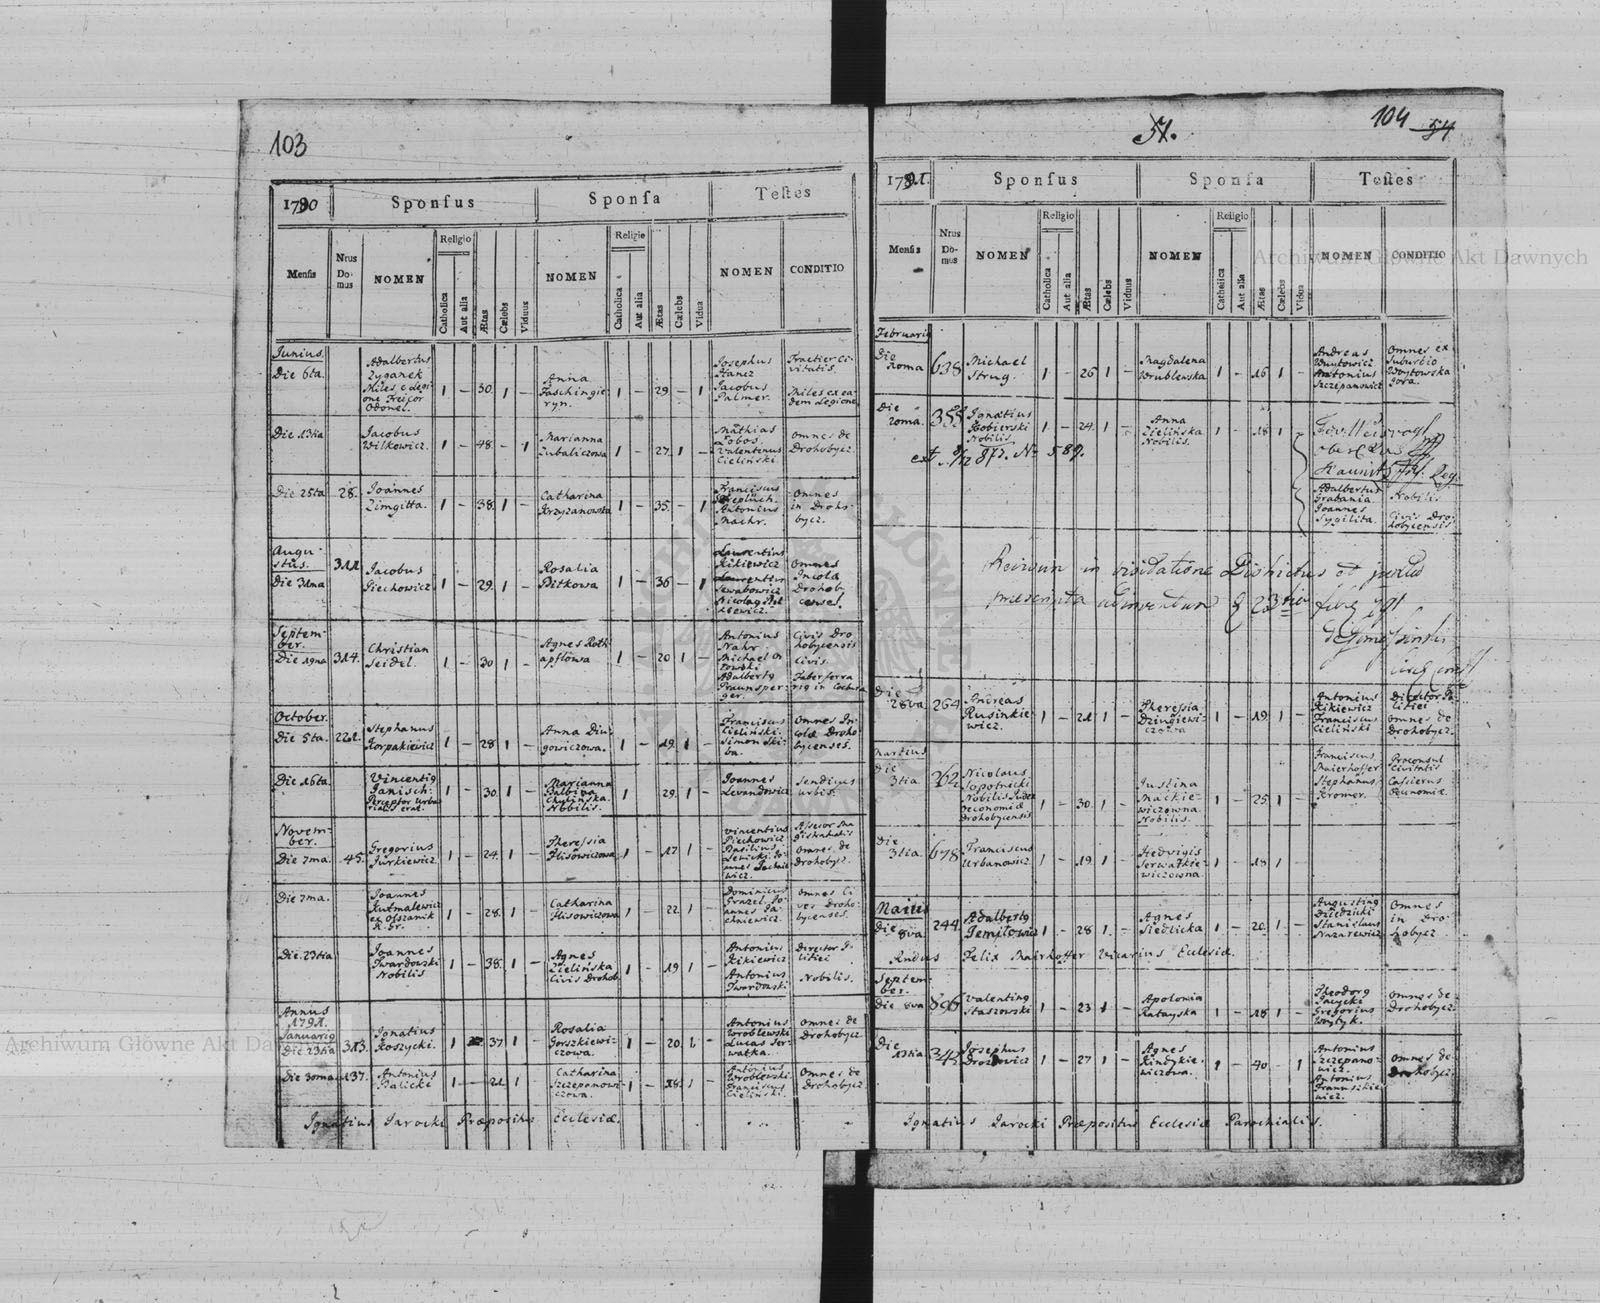 103
1790
Sponsus
Sponsa
Testes
Mensis
Nrus Domus
NOMEN
Religio
Catholica
Aut alia
Ætas
Cælebs
Viduus
NOMEN
Religio
Catholica
Aut alia
Ætas
Cælebs
Vidua
NOMEN
CONDITIO
Junius.
Die 6ta.
Adalbertus
Zyganek
Miles e Legi-
one
1 – 30. 1 –
Anna
1 – 29 – 1
Josephus
Jacobus
Palmer.
Civitatis.
Miles ex ea-
dem Legione
Die 13tia
Jacobus
Wilkowicz.
1 – 48. – 1
Marianna
Zubaliczowa
1 – 27. 1 –
Mathias
Łobos.
Valentinus
Cieliński.
omnes de
Drohobycz.
Die 25ta
28.
Joannes
Zimgitta.
1 – 38. 1 –
Catharina
Krzyzanowska
1 – 35. – 1
Franciscus
Antonius
Machr.
omnes
in Droho-
bycz.
Augu-
stus.
Die 31ma
311
Jacobus
Piechowicz
1 – 29. 1 –
Rosalia
Bitkowa
1 – 36 – 1
Laurentius
Kikiewicz
Laurentius
Sewałowicz
omnes
Incolæ
Drohoby
censes.
Septem-
ber.
Die 19na
314.
Christian
Seidel.
1 – 30 1 –
Agnes Roth
apflowa
1 – 20 1 –
Antonius
Nahr
Michael
Adalbertg
Praunsper-
ger.
Civis Dro
hobycensis
Civis.
Faber ferra
October.
Die 5ta.
221.
Stephanus
Korpakiewicz
1 – 28 1 –
Anna Diu-
gowiczowa.
1 – 19. 1 –
Franciscus
Cieliński.
Simon Ski-
ba.
Omnes In-
colæ Droho
bycenses.
Die 16ta.
Vincentig
Janisch.
1 – 30. 1 –
Marianna
Chylińska.
Nobilis.
1 – 29. 1 –
Joannes
Levandowicz
Sendicus
urbis.
Novem-
ber.
Die 7ma.
45.
Gregorius
Jurkiewicz
1 – 24. 1 –
Theressia
Hlisowiczowa
1 – 17 1 –
Vincentius
Piechowicz
Basilius
Lewicki
Assesor Ma
gistratualis
omnes de
Drohobycz.
Die 7ma.
Joannes
Kutmalewicz
1 – 28. 1 –
Catharina
Hlisowiczowa
1 – 22. 1 –
Dominicus
omnes Ci
ves Droho-
bycenses.
Die 23tia
Joannes
Twardowski
Nobilis
1 – 38. 1 –
Agnes
Zielińska
Civis Drohob.
1 – 19 1 –
Antonius
Kikiewicz
Antonius
Twardowski
Director Po-
litiei
Nobilis.
Annus
1791.
Januarig
Die 23tia
313.
Ignatius
Koszycki.
1 – 37. 1 –
Rosalia
Gorszkiewi-
czowa.
1 – 20. 1 –
Antonius
Wroblewski
Lucas Ser-
watka.
omnes de
Drohobycz
Die 30ma
137.
Antonius
Balicki
1 – 21. 1
Catharina
Szczepanowi-
czowa.
1 – 18. 1 –
Antonius
Wroblewski
Franciscus
Cieliński.
Omnes de
Drohobycz
Ignatius Jarocki Præpositus Ecclesiæ.
51.
104 54
1791.
Sponsus
Sponsa
Testes
Mensis
Nrus Domus
NOMEN
Religio
Catholica
Aut alia
Ætas
Cælebs
Viduus
NOMEN
Religio
Catholica
Aut alia
Ætas
Cælebs
Vidua
NOMEN
CONDITIO
Februarig
Die
20ma
638
Michael
Strug.
1 – 26 1 –
Magdalena
Wrublewska
1 – 16 1 –
Andreas
Woytowicz
Antonius
Szczepanowicz
Omnes ex
Suburbio
Woytowska
Gora.
Die
20ma.
355
Ignatius
Kobierski
Nobilis
1 – 24. 1 –
Anna
Zielińska
Nobilis.
1 – 18 1
Kaunitz
Adalbertus
Grabania
Joannes
Sygilita.
Nobilis
Civis Dro-
hobycensis
ext. 9/12 877. N 589.
Revisum in visitatione Districtus et juxta
præscripta adinventum d 23tia febr 791
Die
28va.
264
Andreas
Rusinkie-
wicz.
1 – 21 1 –
Theressia
Dzingiewi-
czowa
1 – 19 1 –
Antonius
Kikiewicz
Franciscus
Cieliński
Director Po-
litiei
omnes de
Drohobycz.
Martius
Die
3tia
262
Nicolaus
Sopotnicki
Nobilis Judex
Oeconomiæ
Drohobycensis
1 – 30. 1 –
Justina
Mackie-
wiczowna
Nobilis.
1 – 25 1 –
Franciscus
Maierhoffer
Stephanus
Kromer.
Proconsul
Civitatis
Cassierus
Œconomiæ.
Die
3tia.
678
Franciscus
Urbanowicz
1 – 19 1 –
Hedvigis
Serwatkie-
wiczowna
1 – 18 1
Maius
Die
8va
244
Adalbertg
1 – 28 1. –
Agnes
Siedlicka
1 – 20. 1 –
Augusting
Dziedzicki
Stanislaus
Nazarewicz
Omnes
in Dro-
hobycz
Felix Maierhoffer Vicarius Ecclesiæ.
Septem-
ber.
Die 8va
896
Valenting
Staszowski
1 – 23 1 –
Apolonia
Ratayska
1 – 18 1 –
Theodorg
Jacycki
Gregorius
Woytyk.
omnes de
Drohobycz.
Die
13tia
345
Josephus
Drozdowicz
1 – 27 1 –
Agnes
Kindykie-
wiczowa.
1 – 40. – 1
Antonius
Szczepano-
wicz.
Antonius
Franuszkie
wicz.
omnes de
Drohobycz.
Ignatius Jarocki Præpositus Ecclesiæ Parochialis.
Archiwum Główne Akt Dawnych
Archiwum Główne Akt Dawnych